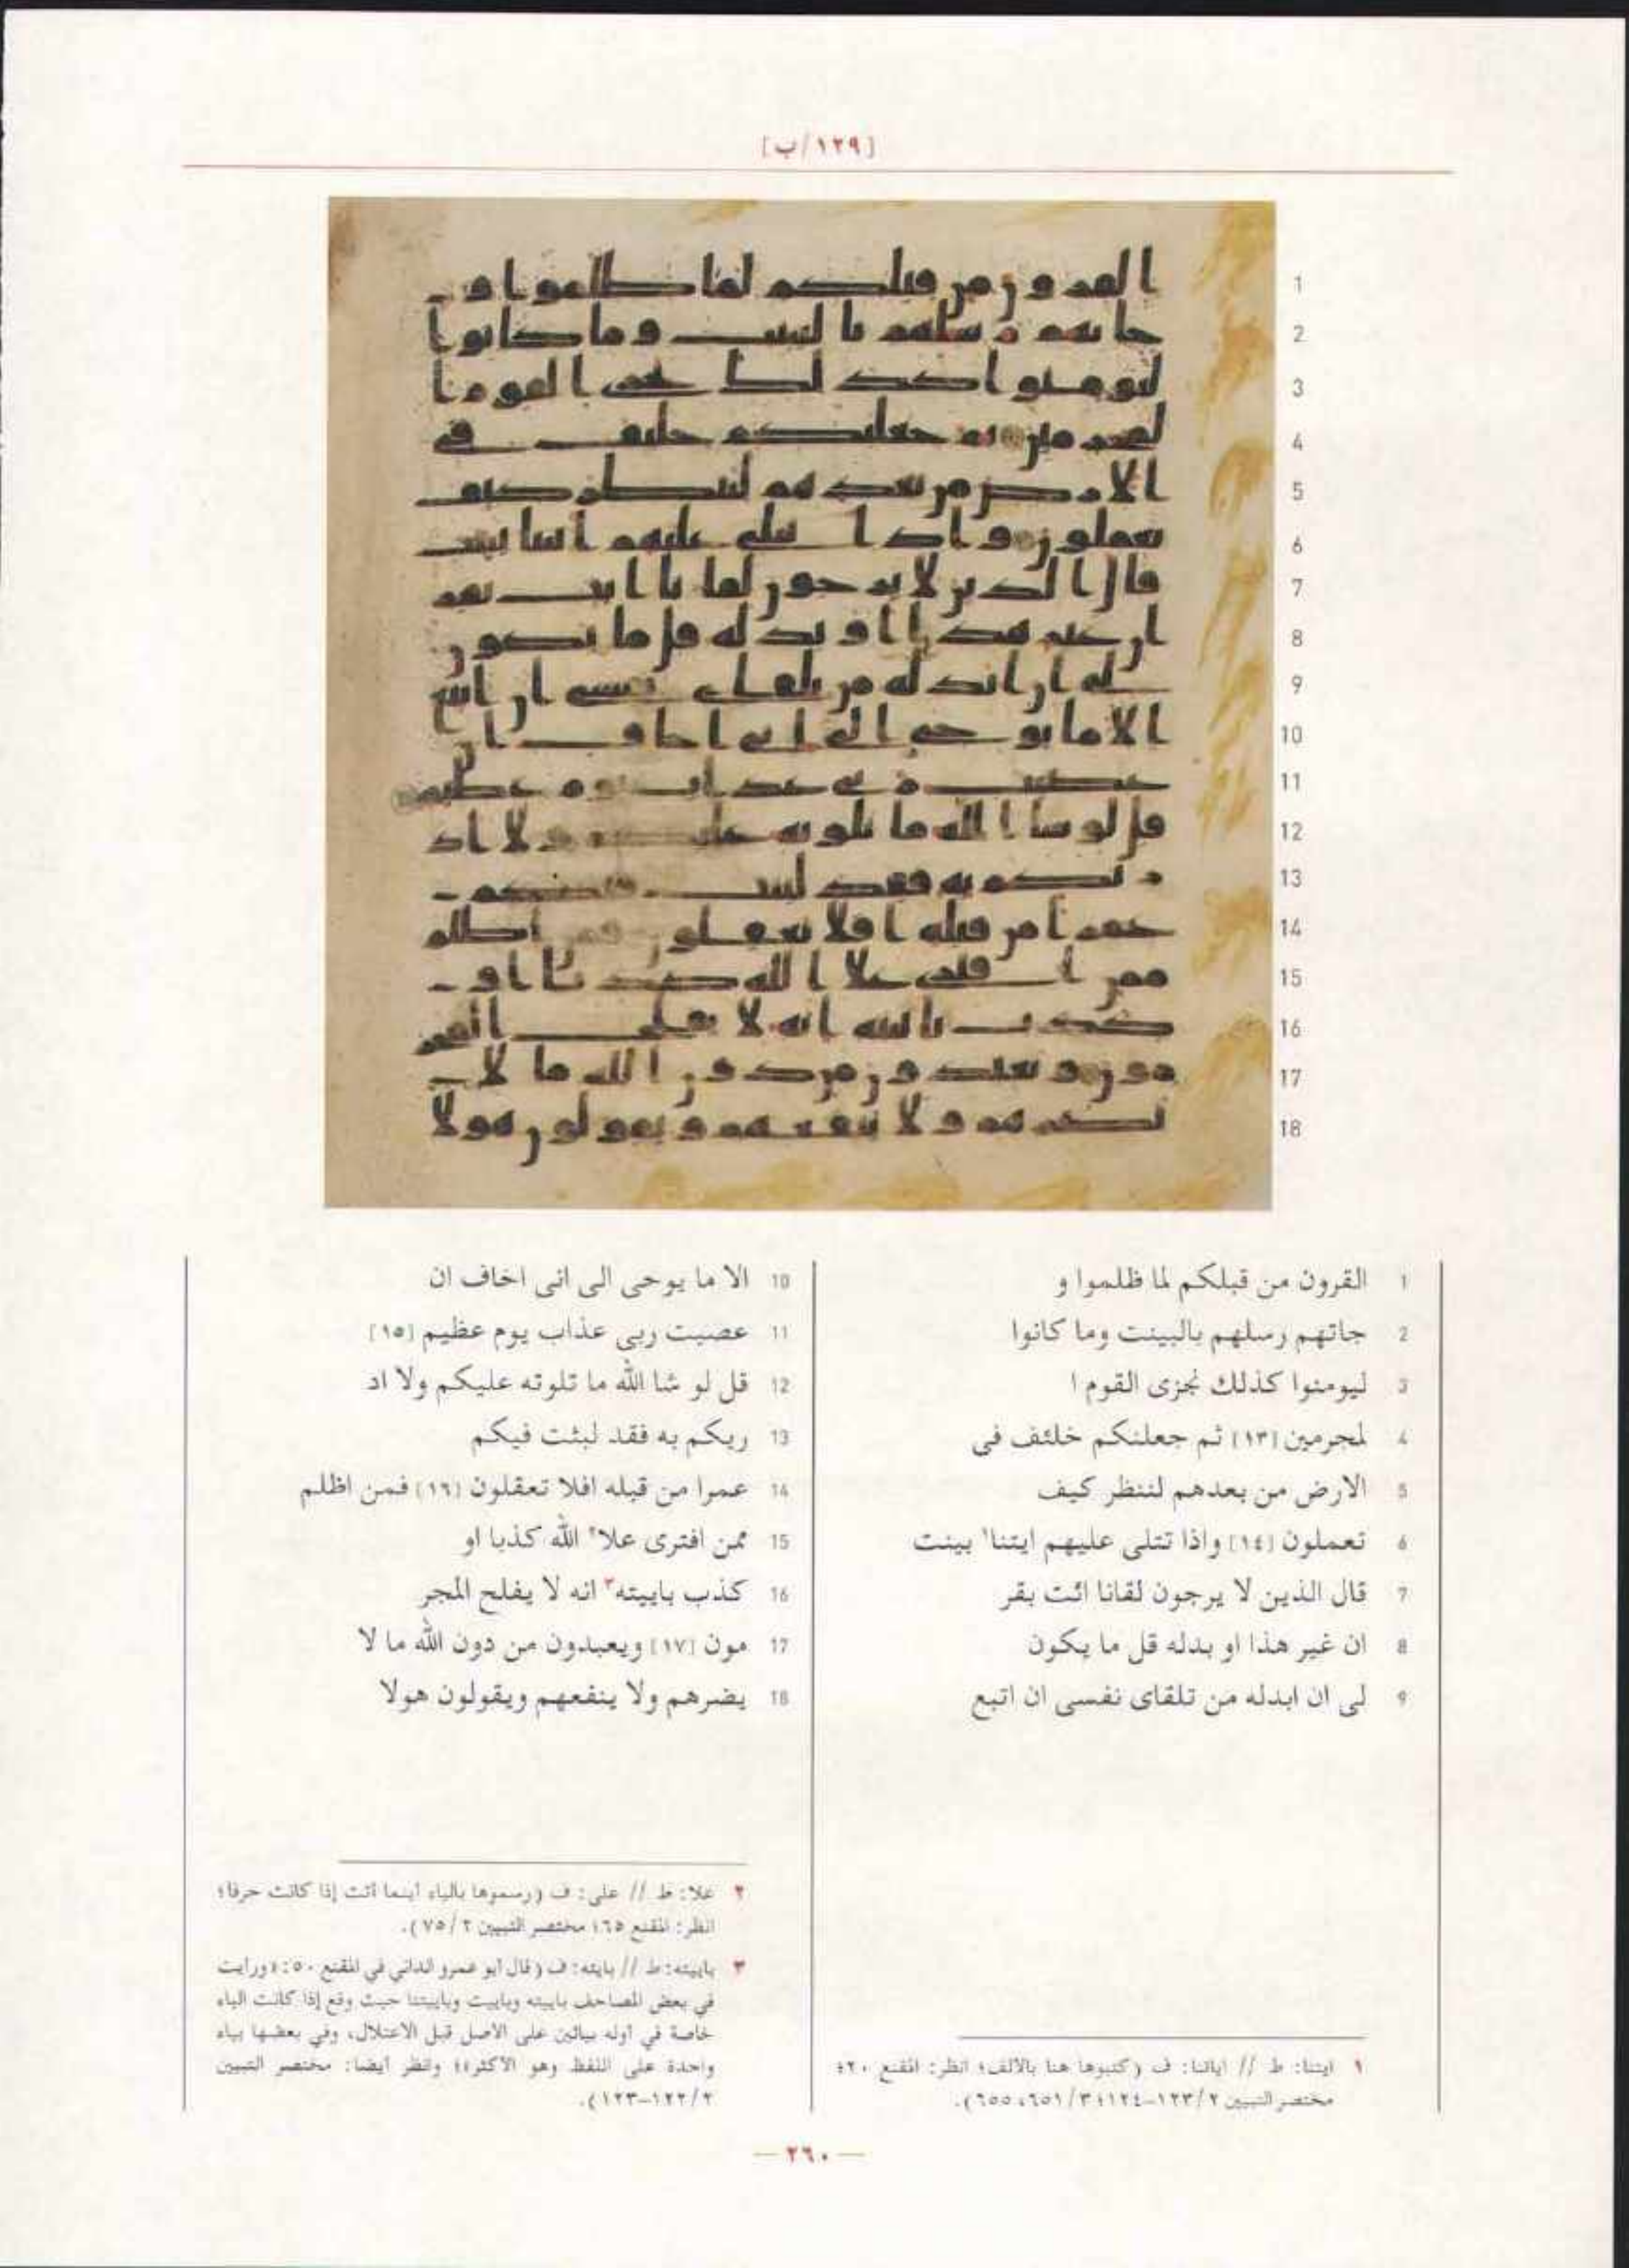 [١٢٩/ب]
1 القرون من قبلكم لما ظلموا و
2 جاتهم رسلهم بالبينت وما كانوا
3 ليومنوا كذلك نجزى القوم ا
4 لمجرمين [١٣] ثم جعلنكم خلئف فى
5 الارض من بعدهم لننظر كيف
6 تعملون [١٤] واذا تتلى عليهم ايتنا١ بينت
7 قال الذين لا يرجون لقانا ائت بقر
8 ان غير هذا او بدله قل ما يكون
9 لى ان ابدله من تلقاى نفسى ان اتبع
10 الا ما يوحى الى انى اخاف ان
11 عصيت ربى عذاب يوم عظيم [١٥]
12 قل لو شا الله ما تلوته عليكم ولا اد
13 ريكم به فقد لبثت فيكم
14 عمرا من قبله افلا تعقلون [١٦] فمن اظلم
15 ممن افترى علا٢ الله كذبا او
16 كذب باييته٣ انه لا يفلح المجر
17 مون [١٧] ويعبدون من دون الله ما لا
18 يضرهم ولا ينفعهم ويقولون هولا
١ ايتنا: ط // اياتنا: ف (كتبوها هنا بالالف؛ انظر: المقنع ٢٠؛
مختصر التبيين ٢/ ١٢٣-١٢٤؛ ٣/ ٦٥١، ٦٥٥).
٢ علا: ط // على: ف (رسموها بالياء أينما أتت إذا كانت حرفا؛
انظر: المقنع ٦٥؛ مختصر التبيين ٢/ ٧٥).
٣ باييته: ط // بايته: ف (قال أبو عمرو الداني في المقنع ٥٠: «ورايت
في بعض المصاحف باييته وباييت وباييتنا حيث وقع إذا كانت الباء
خاصة في أوله بيائين على الأصل قبل الاعتلال، وفي بعضها بياء
واحدة على اللفظ وهو الأكثر»؛ وانظر أيضا: مختصر التبيين
٢/ ١٢٢-١٢٣).
— ٢٦٠ —